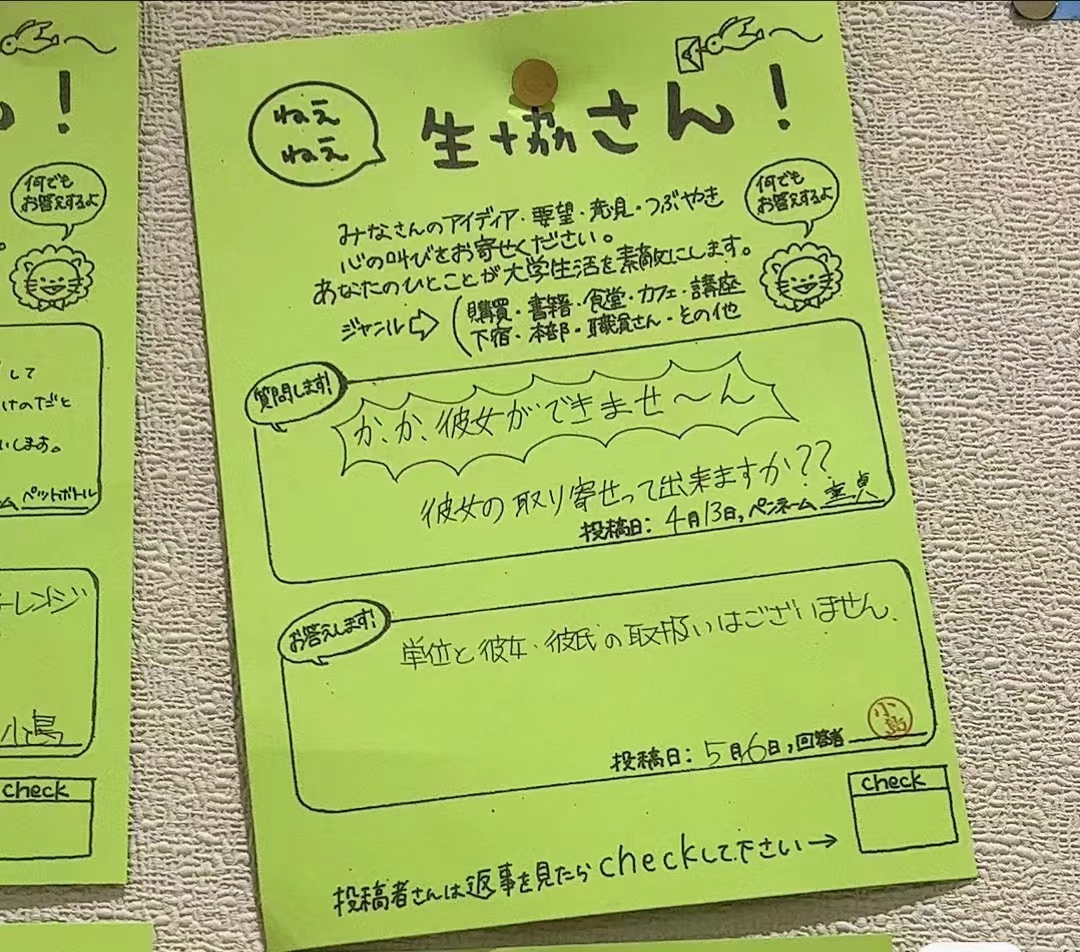 ん！
何でも
お答えするよ
して
けのだと
いします。
ム ペットボトル
ーレンジ
小島
check
ねえ
ねえ
生協さん！
何でも
お答えするよ
みなさんのアイディア・要望・発見・つぶやき
心の叫びをお寄せください。
あなたのひとことが大学生活を素敵にします。
ジャンル⇨（購買・書籍・食堂・カフェ・講座
下宿・本部・職員さん・その他
質問します!
か、か、彼女ができませ〜ん
彼女の取り寄せって出来ますか??
投稿日：4月13日，ペンネーム 童貞
お答えします!
単位と彼女・彼氏の取扱いはございません．
小島
投稿日：5月6日，回答者
check
投稿者さんは返事を見たらcheckして下さい→